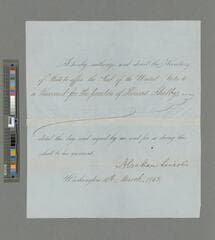 I hereby authorize and direct the Secretary
of State to affix the Seal of the United States to
a Warrant for the pardon of Thomas Shelby
dated this day and signed by me and for so doing this
shall be his warrant.
Abraham Lincoln
Washington March, 1863.